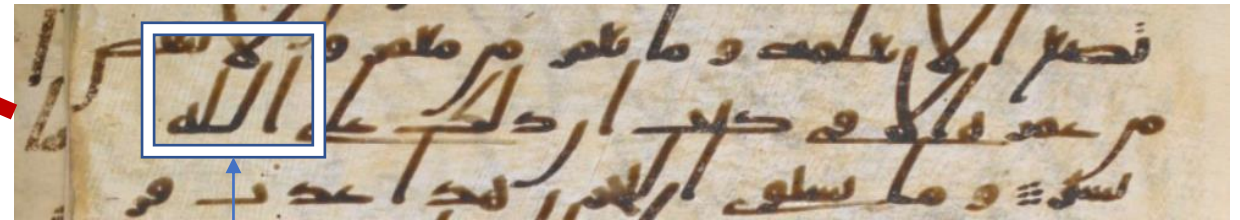 تضع الا بعلمه و ما يعمر من معمر و لا ينقص
من عمره الا في كتب ان ذلك على الله
يسير و ما يستوي البحرن هذا عذب فر